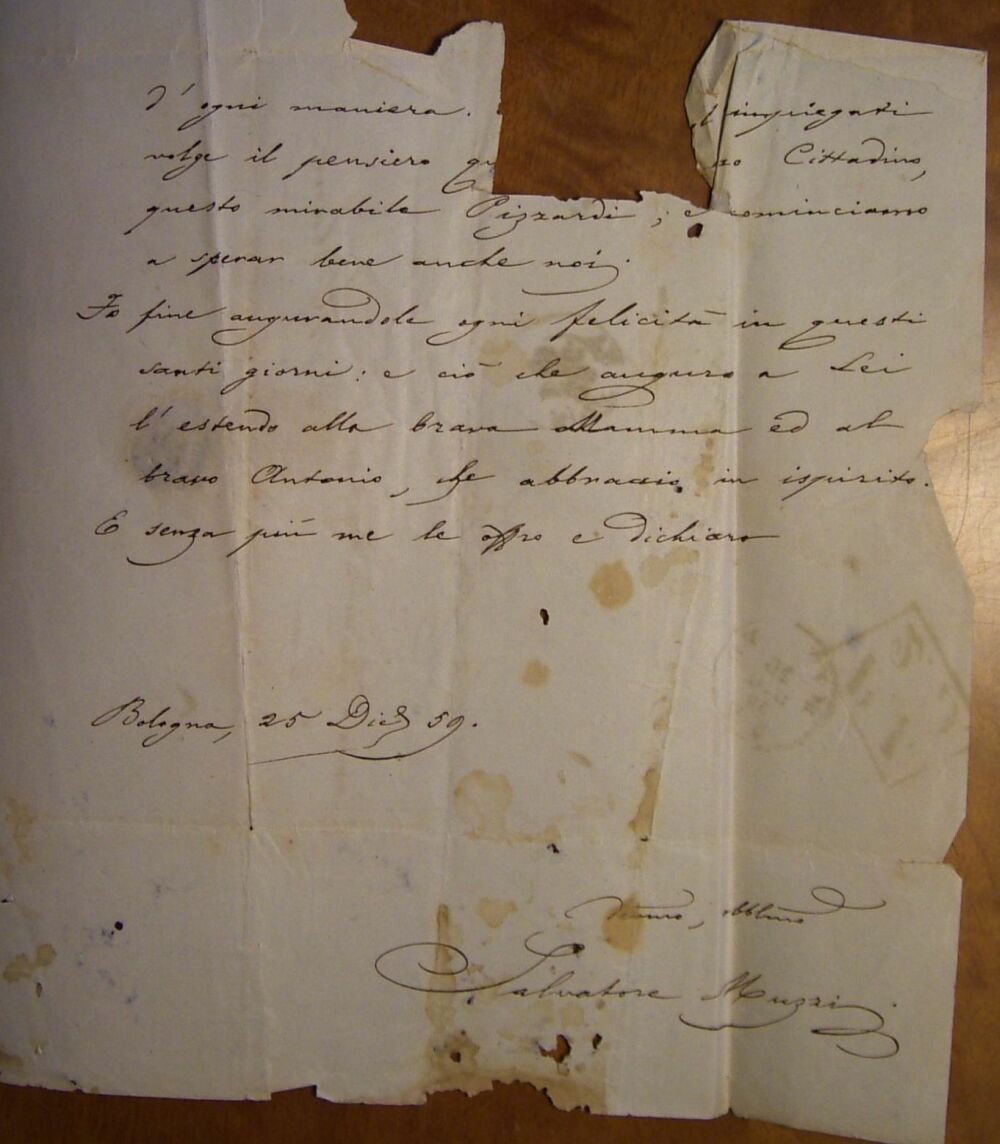 d' ogni maniera. impiegati
volge il pensiero Cittadino,
questo mirabile Pizzardi; e cominciamo
a sperar bene anche noi.
Fo fine augurandole ogni felicità in questi
santi giorni: e ciò che auguro a Lei
l' estendo alla brava Mamma ed al
bravo Antonio, che abbraccio in ispirito.
E senza più me le offro e dichiaro
Bologna, 25 Dice 59.
Devmo, obblmo
Salvatore Muzzi